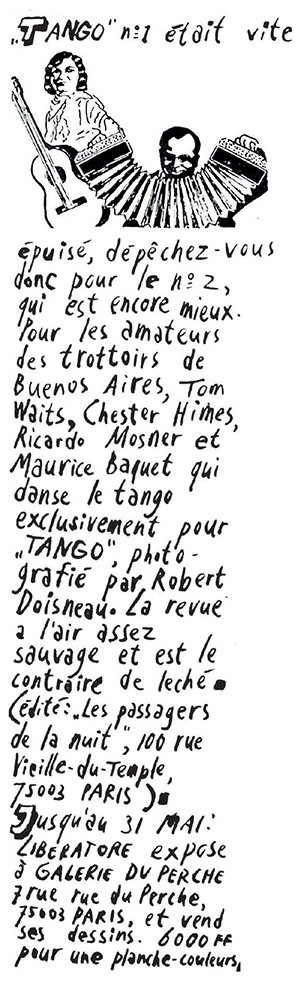 „TANGO" nº1 était vite
épuisé, dépêchez-vous
donc pour le nº 2,
qui est encore mieux.
Pour les amateurs
des trottoirs de
Buenos Aires, Tom
Waits, Chester Himes,
Ricardo Mosner et
Maurice Baquet qui
danse le tango
exclusivement pour
„TANGO", photo-
grafié par Robert
Doisneau. La revue
a l'air assez
sauvage et est le
contraire de leché.
(édité: „Les passagers
de la nuit", 100 rue
Vieille-du-Temple,
75003 PARIS).
Jusqu'au 31 MAI:
LIBERATORE expose
à GALERIE DU PERCHE
7 rue rue du Perche,
75003 PARIS, et vend
ses dessins. 6000 FF
pour une planche-couleurs,